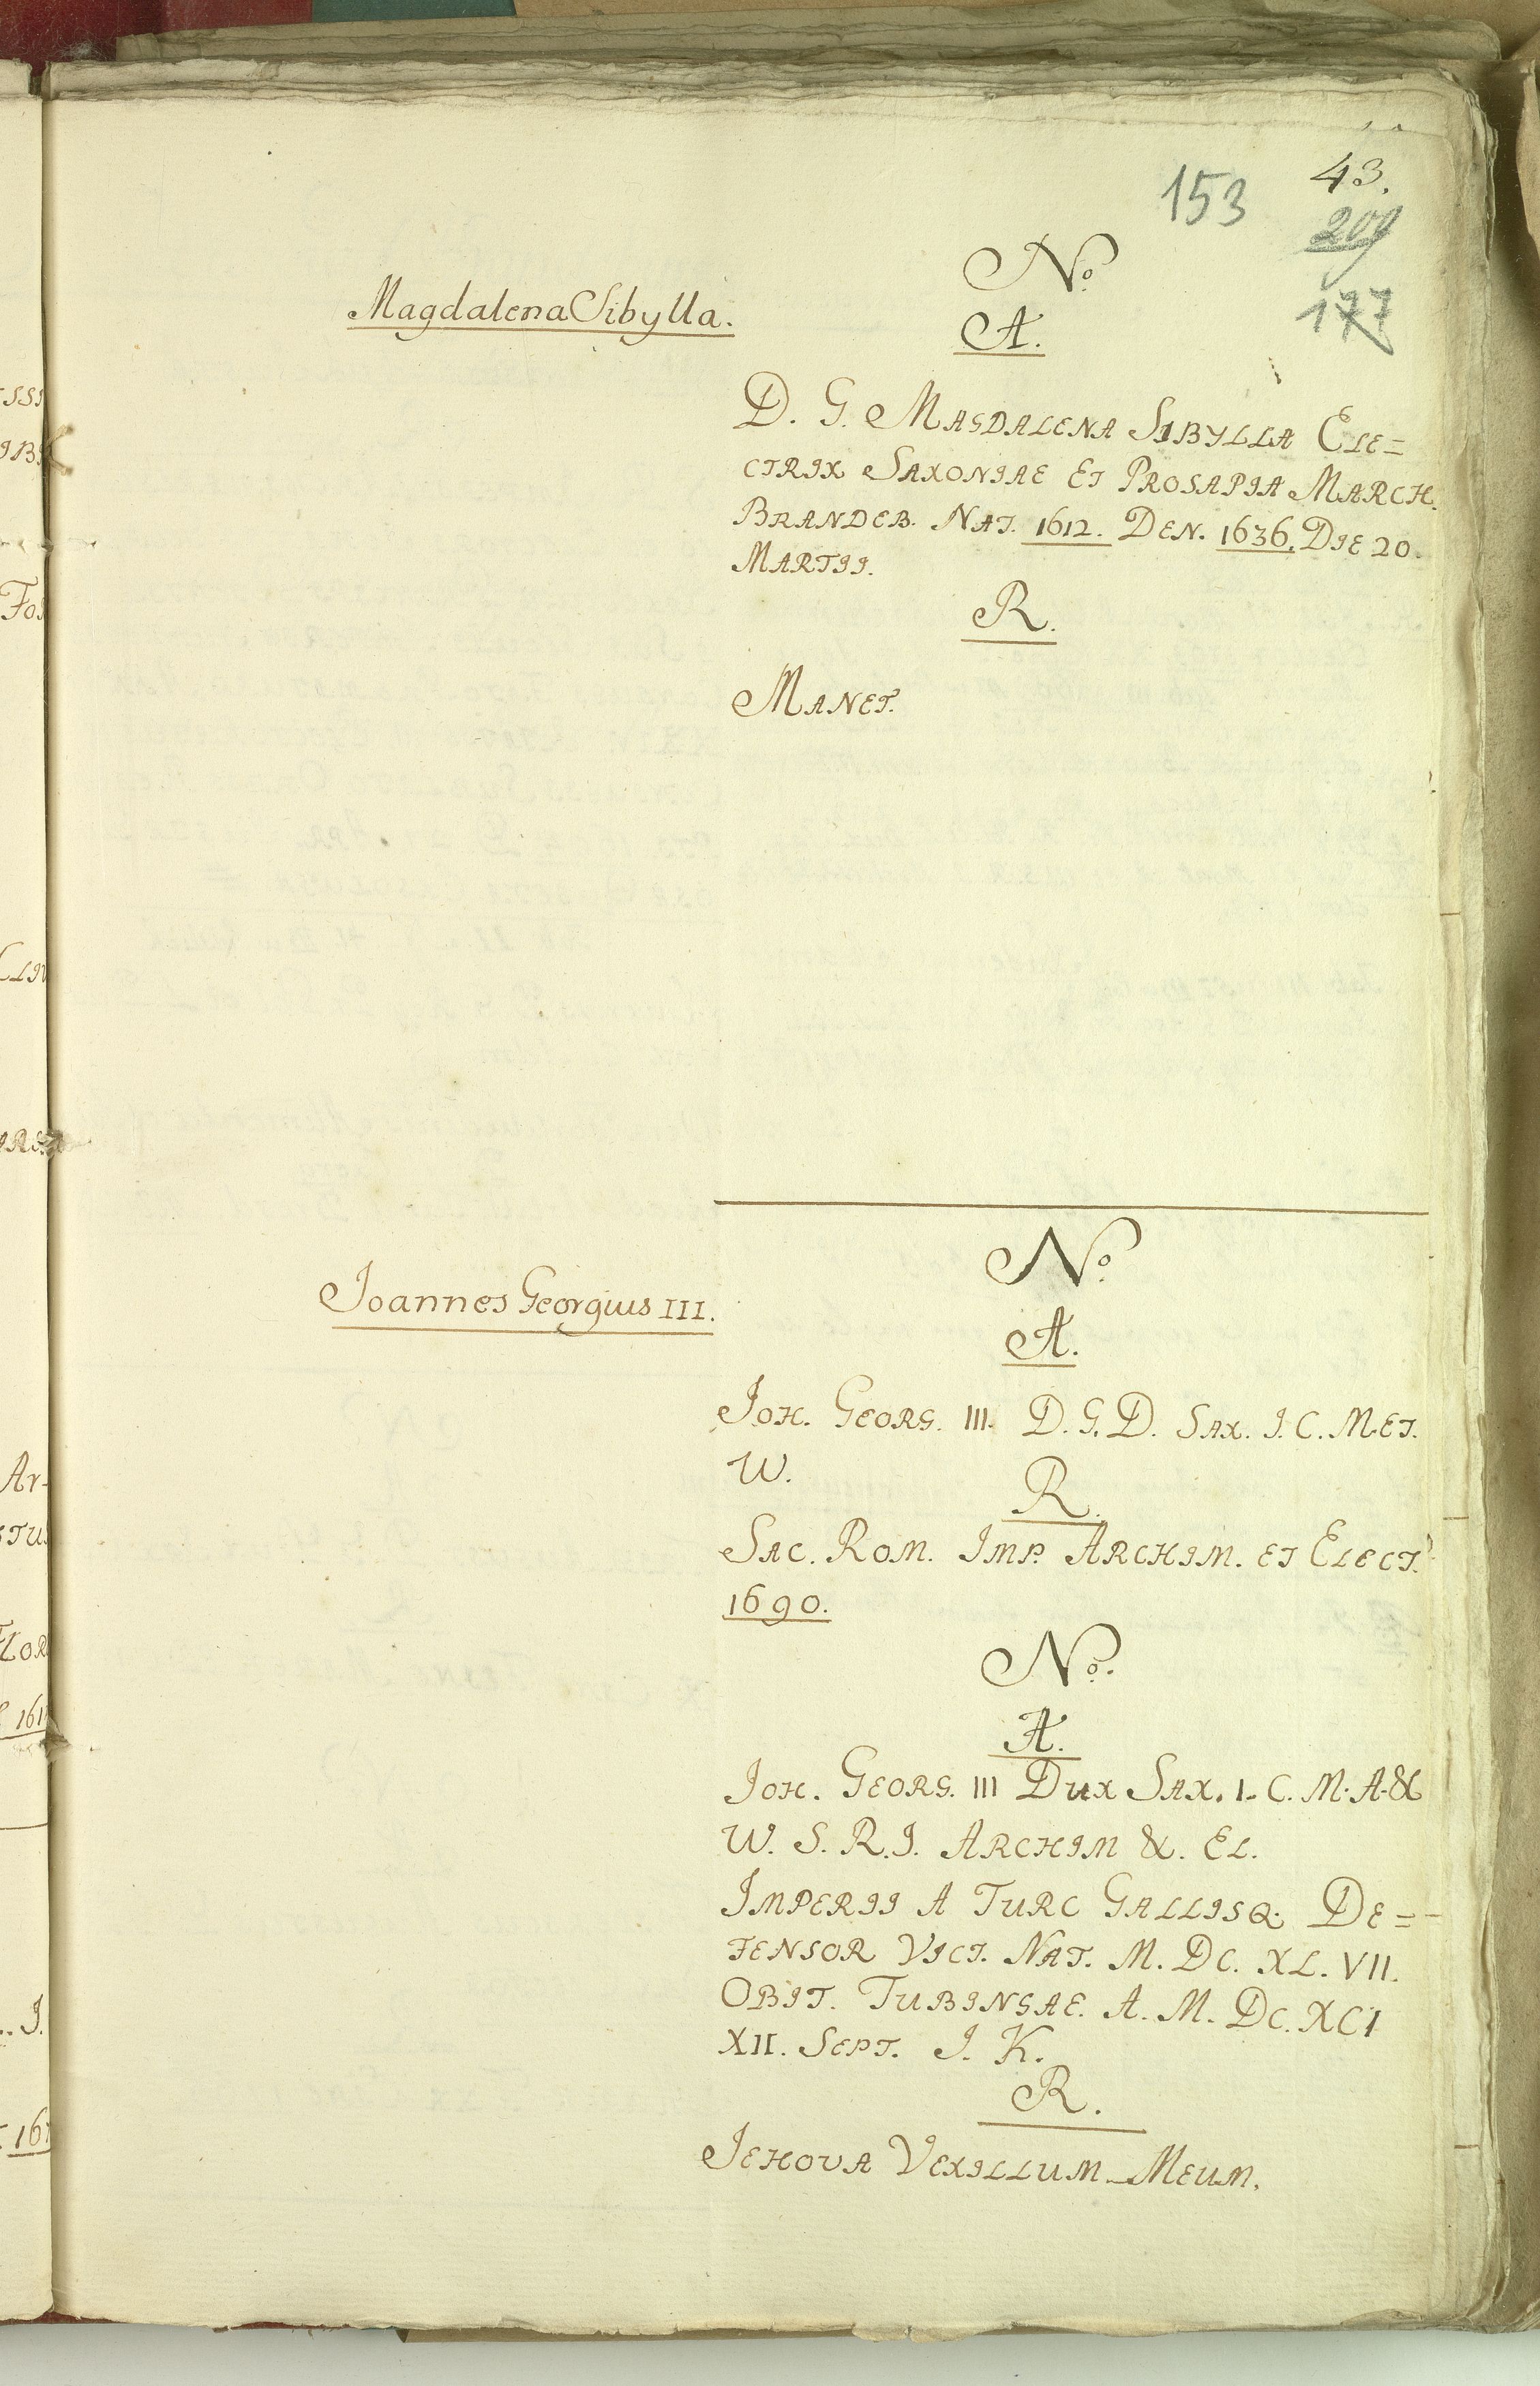 153
43.
209
177
Magdalena Sibylla.
No.
A.
D. G. MAGDALENA SIBYLLA ELE=
CTRIX SAXONIAE ET PROSAPIA MARCH.
BRANDEB. NAT. 1612. DEN. 1636. DIE 20.
MARTII.
R.
MANET.
Joannes Georgius III.
No.
A.
JOH. GEORG. III. D. G. D. SAX. J. C. M. ET.
W.
R.
SAC. ROM. IMP. ARCHIM. ET ELECT.
1690.
No.
A.
JOH. GEORG. III DUX SAX. I. C. M. A. &
W. S. R. J. ARCHIM &. EL.
IMPERII A TURC GALLISQ. DE=
FENSOR VICT. NAT. M. DC. XL. VII.
OBIT. TUBINGAE. A. M. DC. XCI
XII. SEPT. J. K.
R.
JEHOVA VEXILLUM MEUM.